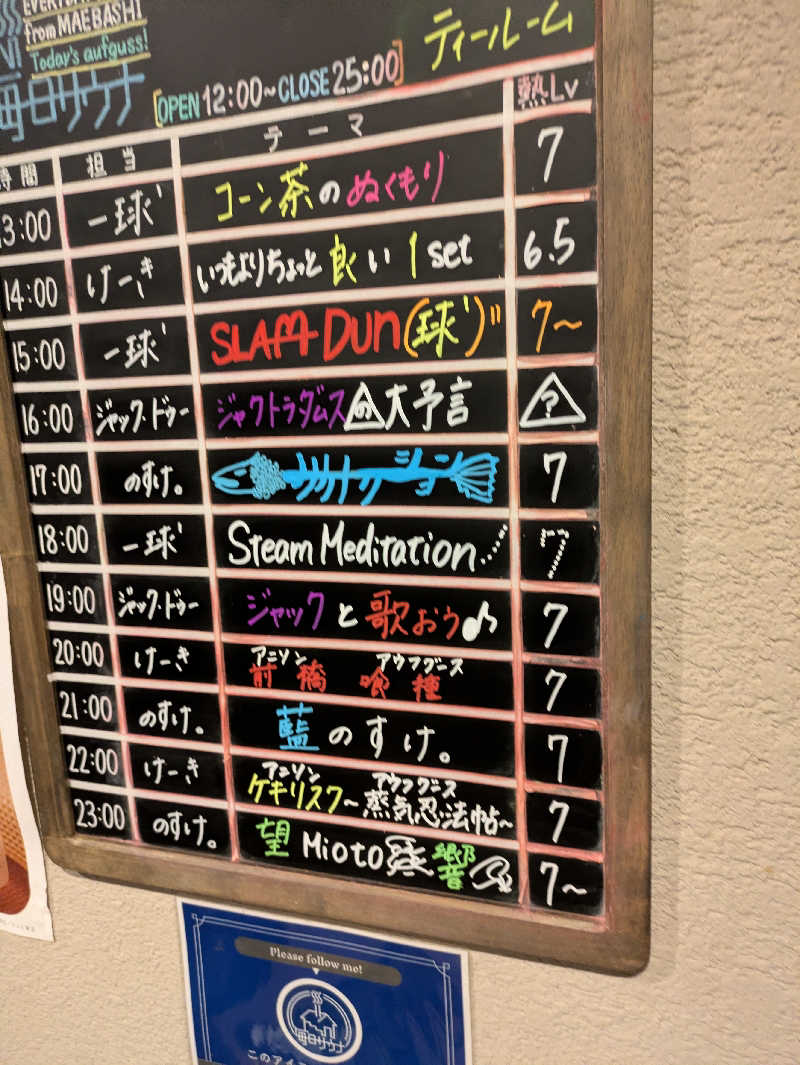 EVERYDAY
from MAEBASHI
Today's aufguss!
毎日サウナ
ティールーム
OPEN 12:00~CLOSE 25:00
時間 担当 テーマ 熱Lv
13:00 一球' コーン茶のぬくもり 7
14:00 けーき いつもよりちょっと良い 1set 6.5
15:00 一球' SLAM DUN(球')" 7~
16:00 ジャック・ドゥー ジャクトラダムスの大予言 ?
17:00 のすけ。 7
18:00 一球' Steam Meditation..... 7
19:00 ジャック・ドゥー ジャックと歌おう♪ 7
20:00 けーき 前橋喰種 アニソン アウフグース 7
21:00 のすけ。 藍のすけ。 7
22:00 けーき ケキリスク~蒸気忍法帖~ アニソン アウフグース 7
23:00 のすけ。 望 Mioto 響 7~
Please follow me!
毎日サウナ